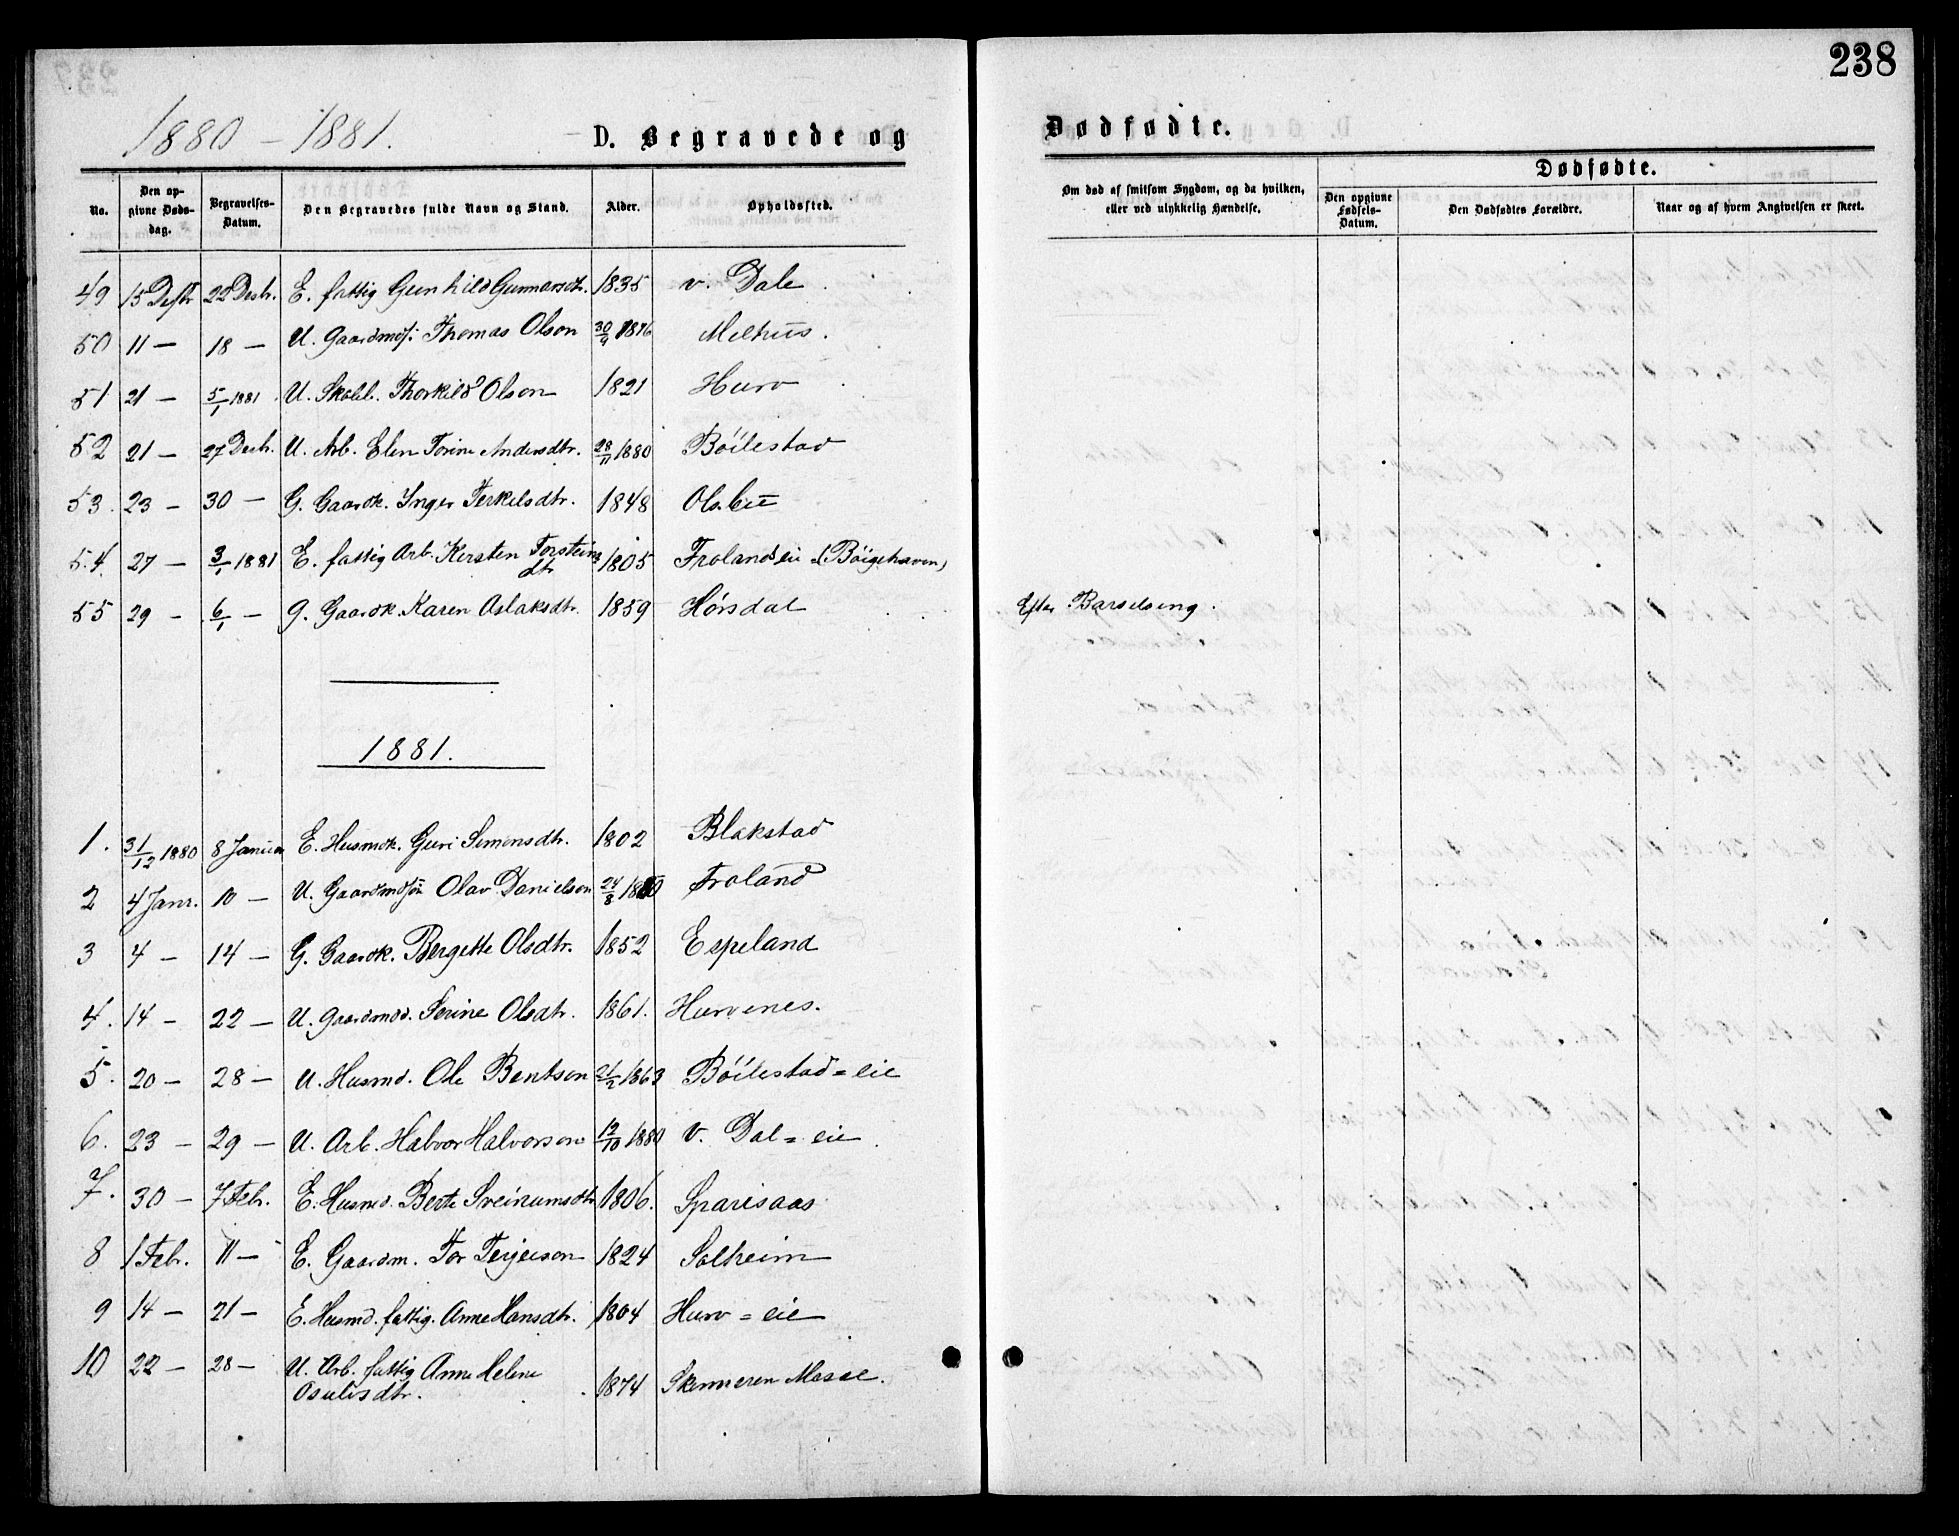 238
1880 – 1881.
D. Begravede og
Dødfødte.
No.
Den opgivne Dødsdag.
Begravelses-Datum.
Den Begravedes fulde Navn og Stand.
Alder.
Opholdssted.
Om død af smitsom Sygdom, og da hvilken, eller ved ulykkelig Hændelse.
Dødfødte.
Den opgivne Fødsels-Datum.
Den Dødfødtes Forældre.
Naar og af hvem Angivelsen er skeet.
49 15 Desbr 22 Desbr. E. fattig Gunhild Gunnarsdtr. 1835 v. Dale.
50 11 — 18 — U. Gaardmds. Thomas Olson 30/9 1876 Melhus.
51 21 — 5/1 1881 U. Skoll. Thorkild Olson 1821 Hurv
52 21 — 27 Desbr. U. Arb. Elen Torine Andersdtr. 28/11 1880 Böilestad
53. 23 — 30 — G. Gaardk. Inger Terkelsdtr. 1848 Olsbu
54. 27 — 3/1 1881 E. fattig Arb. Kersten Torsteins dtr 1805 Frolands eie (Böigehaven)
55 29 — 6/1 — g. Gaardk. Karen Aslaksdtr. 1859 Hörsdal Efter Barselseng.
1881.
1. 31/12 1880 8 Januar E. Husmdk. Guri Simonsdtr. 1802 Blakstad
2 4 Janr. 10 — U. Gaardmdsön Olav Danielson 24/8 1880 Froland
3 4 — 14 — G. Gaardk. Bergette Olsdtr. 1852 Espeland
4. 14 — 22 — U. Gaardmdd. Serine Olsdtr. 1861. Hurvenes.
5. 20 — 28 — U. Husmd. Ole Bentson 21/2 1863 Böilestad=eie
6. 23 — 29 — U. Arb. Halvor Halvorson 12/10 1880 v. Dal=eie.
7. 30 — 7 Febr. E. Husmd. Berte Sveinumsdtr 1806. Sparisaas
8 1 Febr. 11 — E. Gaardm. Tor Terjeison 1824 Solheim
9 14 — 21 — E. Husmd. fattig. Anne Hansdtr. 1804 Hurv=eie
10 22 — 28 — U. Arb. fattig Anne Helene
Osulisdtr. 1874 Skenneren Messel.